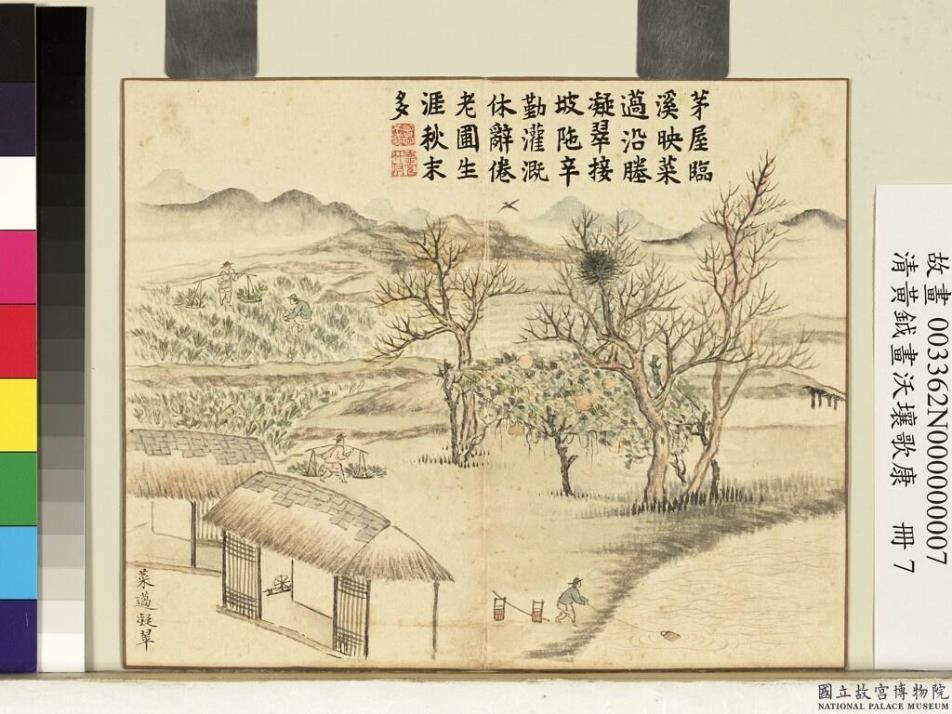 茅屋臨
溪映菜
薖沿塍
凝翠接
坡陁辛
勤灌溉
休辭倦
老圃生
涯秋末
多
菜薖凝翠
故畫003362N000000007
清黃鉞畫沃壤歌康 冊 7
國立故宮博物院
NATIONAL PALACE MUSEUM